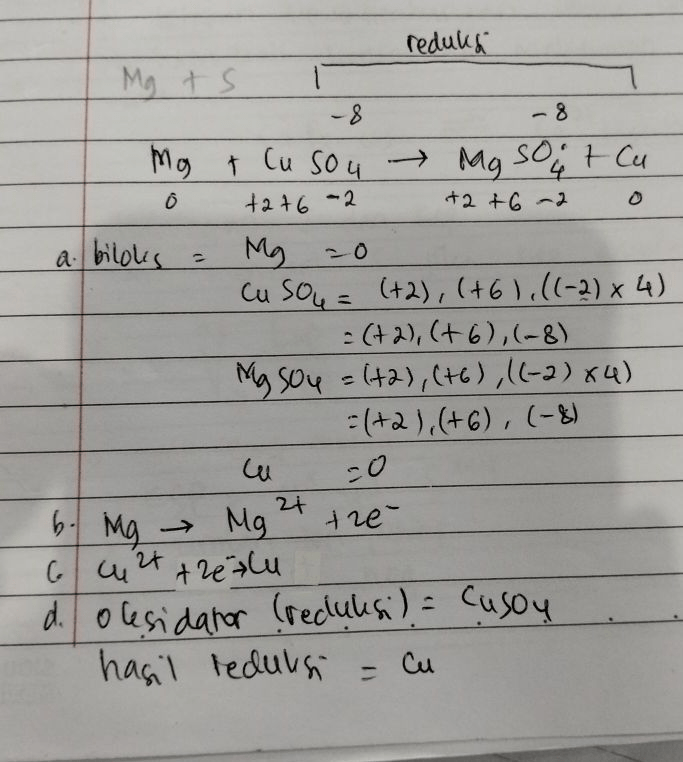 reduksi
Mg + S
-8 -8
Mg + CuSO₄ → MgSO₄ + Cu
0 +2+6 -2 +2 +6 -2 0
a. biloks = Mg = 0
CuSO₄ = (+2), (+6), ((-2) × 4)
= (+2), (+6), (-8)
MgSO₄ = (+2), (+6), ((-2) × 4)
= (+2), (+6), (-8)
Cu = 0
b. Mg → Mg²⁺ + 2e⁻
c. Cu²⁺ + 2e⁻ → Cu
d. oksidator (reduksi) = CuSO₄
hasil reduksi = Cu